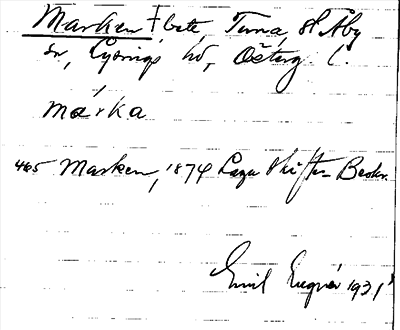 Marken Ebete, Tuna, St Åby
sn, Lysings hd, Österg. l.
marka
465 Marken, 1874 Laga Skiftes-Beskr.
Emil 1931